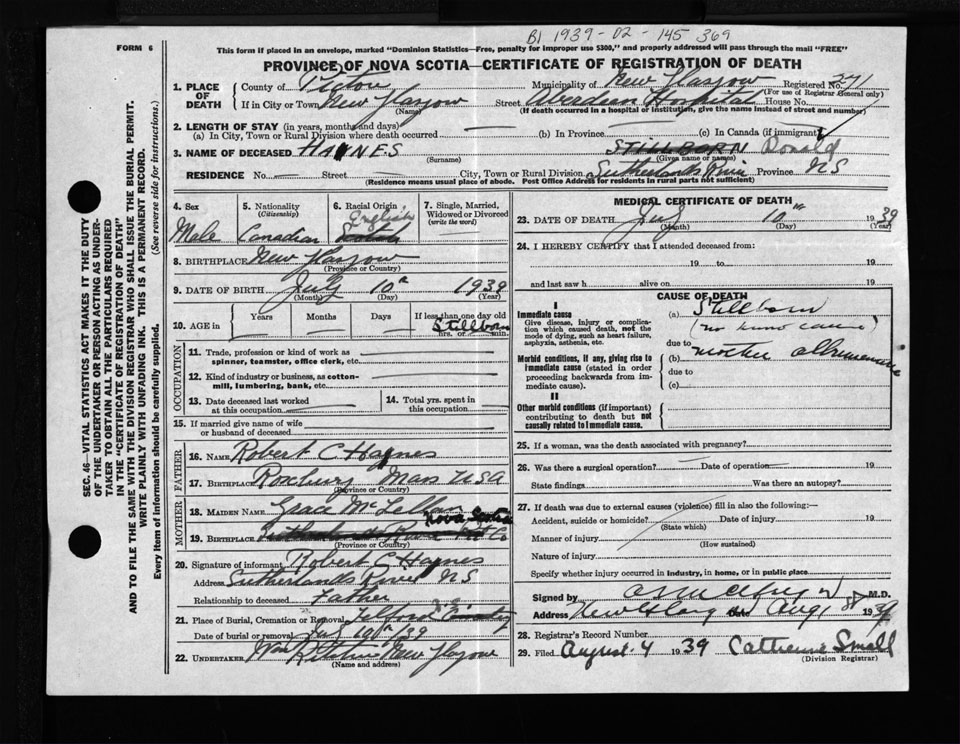 B1 1939-02-145 369
FORM 6
This form if placed in an envelope, marked "Dominion Statistics—Free, penalty for improper use $300," and properly addressed will pass through the mail "FREE"
PROVINCE OF NOVA SCOTIA—CERTIFICATE OF REGISTRATION OF DEATH
1. PLACE OF DEATH
County of Pictou Municipality of New Glasgow Registered No. 271
(For use of Registrar General only)
If in City or Town New Glasgow Street Aberdeen Hospital House No.
(Name) (If death occurred in a hospital or institution, give the name instead of street and number)
2. LENGTH OF STAY (in years, months and days)
(a) In City, Town or Rural Division where death occurred (b) In Province (c) In Canada (if immigrant)
3. NAME OF DECEASED HAYNES STILLBORN Donald
(Surname) (Given name or names)
RESIDENCE No. — Street City, Town or Rural Division Sutherlands River Province NS
(Residence means usual place of abode. Post Office Address for residents in rural parts not sufficient)
SEC. 46—VITAL STATISTICS ACT MAKES IT THE DUTY
OF THE UNDERTAKER OR PERSON ACTING AS UNDER-
TAKER TO OBTAIN ALL THE PARTICULARS REQUIRED
IN THE "CERTIFICATE OF REGISTRATION OF DEATH"
AND TO FILE THE SAME WITH THE DIVISION REGISTRAR WHO SHALL ISSUE THE BURIAL PERMIT.
WRITE PLAINLY WITH UNFADING INK. THIS IS A PERMANENT RECORD.
Every item of information should be carefully supplied. (See reverse side for instructions.)
4. Sex
Male
5. Nationality
(Citizenship)
Canadian
6. Racial Origin
English
Scotch
7. Single, Married,
Widowed or Divorced
(write the word)
8. BIRTHPLACE New Glasgow
(Province or Country)
9. DATE OF BIRTH July 10th 1939
(Month) (Day) (Year)
10. AGE in
Years Months Days If less than one day old
Stillborn
hrs. or min.
OCCUPATION
11. Trade, profession or kind of work as
spinner, teamster, office clerk, etc.
12. Kind of industry or business, as cotton-
mill, lumbering, bank, etc.
13. Date deceased last worked
at this occupation
14. Total yrs. spent in
this occupation
15. If married give name of wife
or husband of deceased
FATHER
16. NAME Robert C Haynes
17. BIRTHPLACE Roxbury Mass USA
(Province or Country)
MOTHER
18. MAIDEN NAME Grace McLellan
Nova Scotia
19. BIRTHPLACE Sutherlands River
(Province or Country)
20. Signature of informant Robert C Haynes
Address Sutherlands River NS
Relationship to deceased Father
21. Place of Burial, Cremation or Removal Telford Cemetery
Date of burial or removal
22. UNDERTAKER New Glasgow
(Name and address)
MEDICAL CERTIFICATE OF DEATH
23. DATE OF DEATH July 10th 1939
(Month) (Day) (Year)
24. I HEREBY CERTIFY that I attended deceased from:
19 to 19
and last saw h alive on 19
CAUSE OF DEATH
I
Immediate cause
Give disease, injury or complica-
tion which caused death, not the
mode of dying, such as heart failure,
asphyxia, asthenia, etc.
Morbid conditions, if any, giving rise to
immediate cause (stated in order
proceeding backwards from im-
mediate cause).
II
Other morbid conditions (if important)
contributing to death but not
causally related to immediate cause.
(a) Stillborn
due to
(b) mother
due to
(c)
25. If a woman, was the death associated with pregnancy?
26. Was there a surgical operation? Date of operation 19
State findings Was there an autopsy?
27. If death was due to external causes (violence) fill in also the following:—
Accident, suicide or homicide? Date of injury 19
(State which)
Manner of injury
(How sustained)
Nature of injury
Specify whether injury occurred in industry, in home, or in public place
Signed by M.D.
Address Aug 1939
28. Registrar's Record Number
29. Filed August 4 1939 Catherine Small
(Division Registrar)